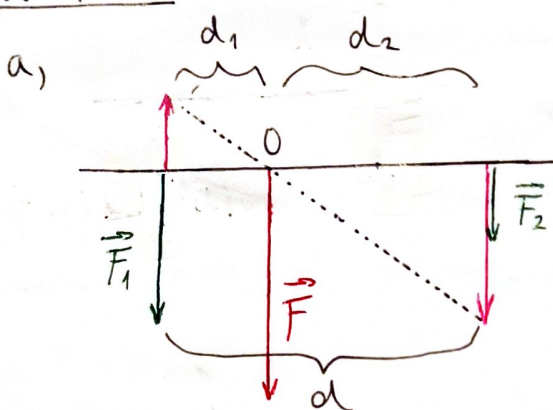 a,
d₁ d₂
O
F⃗₁ F⃗ F⃗₂
d